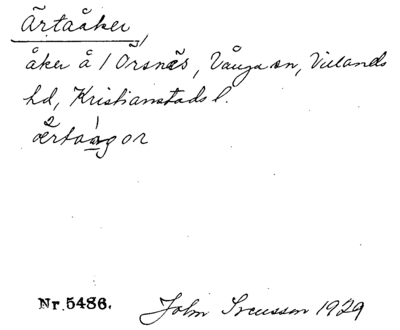 Ärtaåker,
åker å 1 Örsnäs, Vånga sn, Villands
hd, Kristianstads l.
ærtaŋor
Nr. 5486. John Svensson 1929